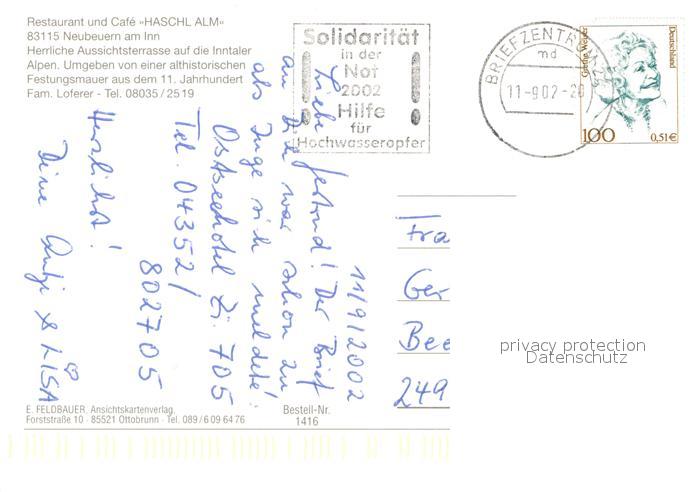 Restaurant und Café »HASCHL ALM«
83115 Neubeuern am Inn
Herrliche Aussichtsterrasse auf die Inntaler
Alpen. Umgeben von einer althistorischen
Festungsmauer aus dem 11. Jahrhundert
Fam. Loferer - Tel. 08035 / 2519
Solidarität
in der
Not
2002
Hilfe
für
Hochwasseropfer
BRIEFZENTRUM
md
11-9.02-20
Grethe Weiser
Deutschland
100
0,51€
11/9/2002
Liebe Gertrud! Der Brief
an Dich war schon zu
als Inge sich meldete!
Ostseehotel Zi. 705
Tel. 04352/
802705
Herzlichst!
Deine Antje & LISA
Fra
Ger
Bee
249
privacy protection
Datenschutz
E. FELDBAUER, Ansichtskartenverlag,
Forststraße 10 · 85521 Ottobrunn - Tel. 089 / 6 09 64 76
Bestell-Nr.
1416